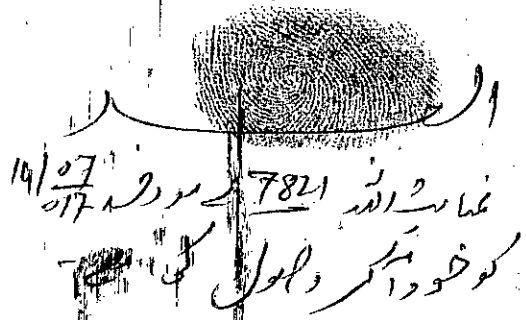 العبد
عنایت اللہ 7821 نے مورخہ 14/07/017
کو خود آکر وصول کی